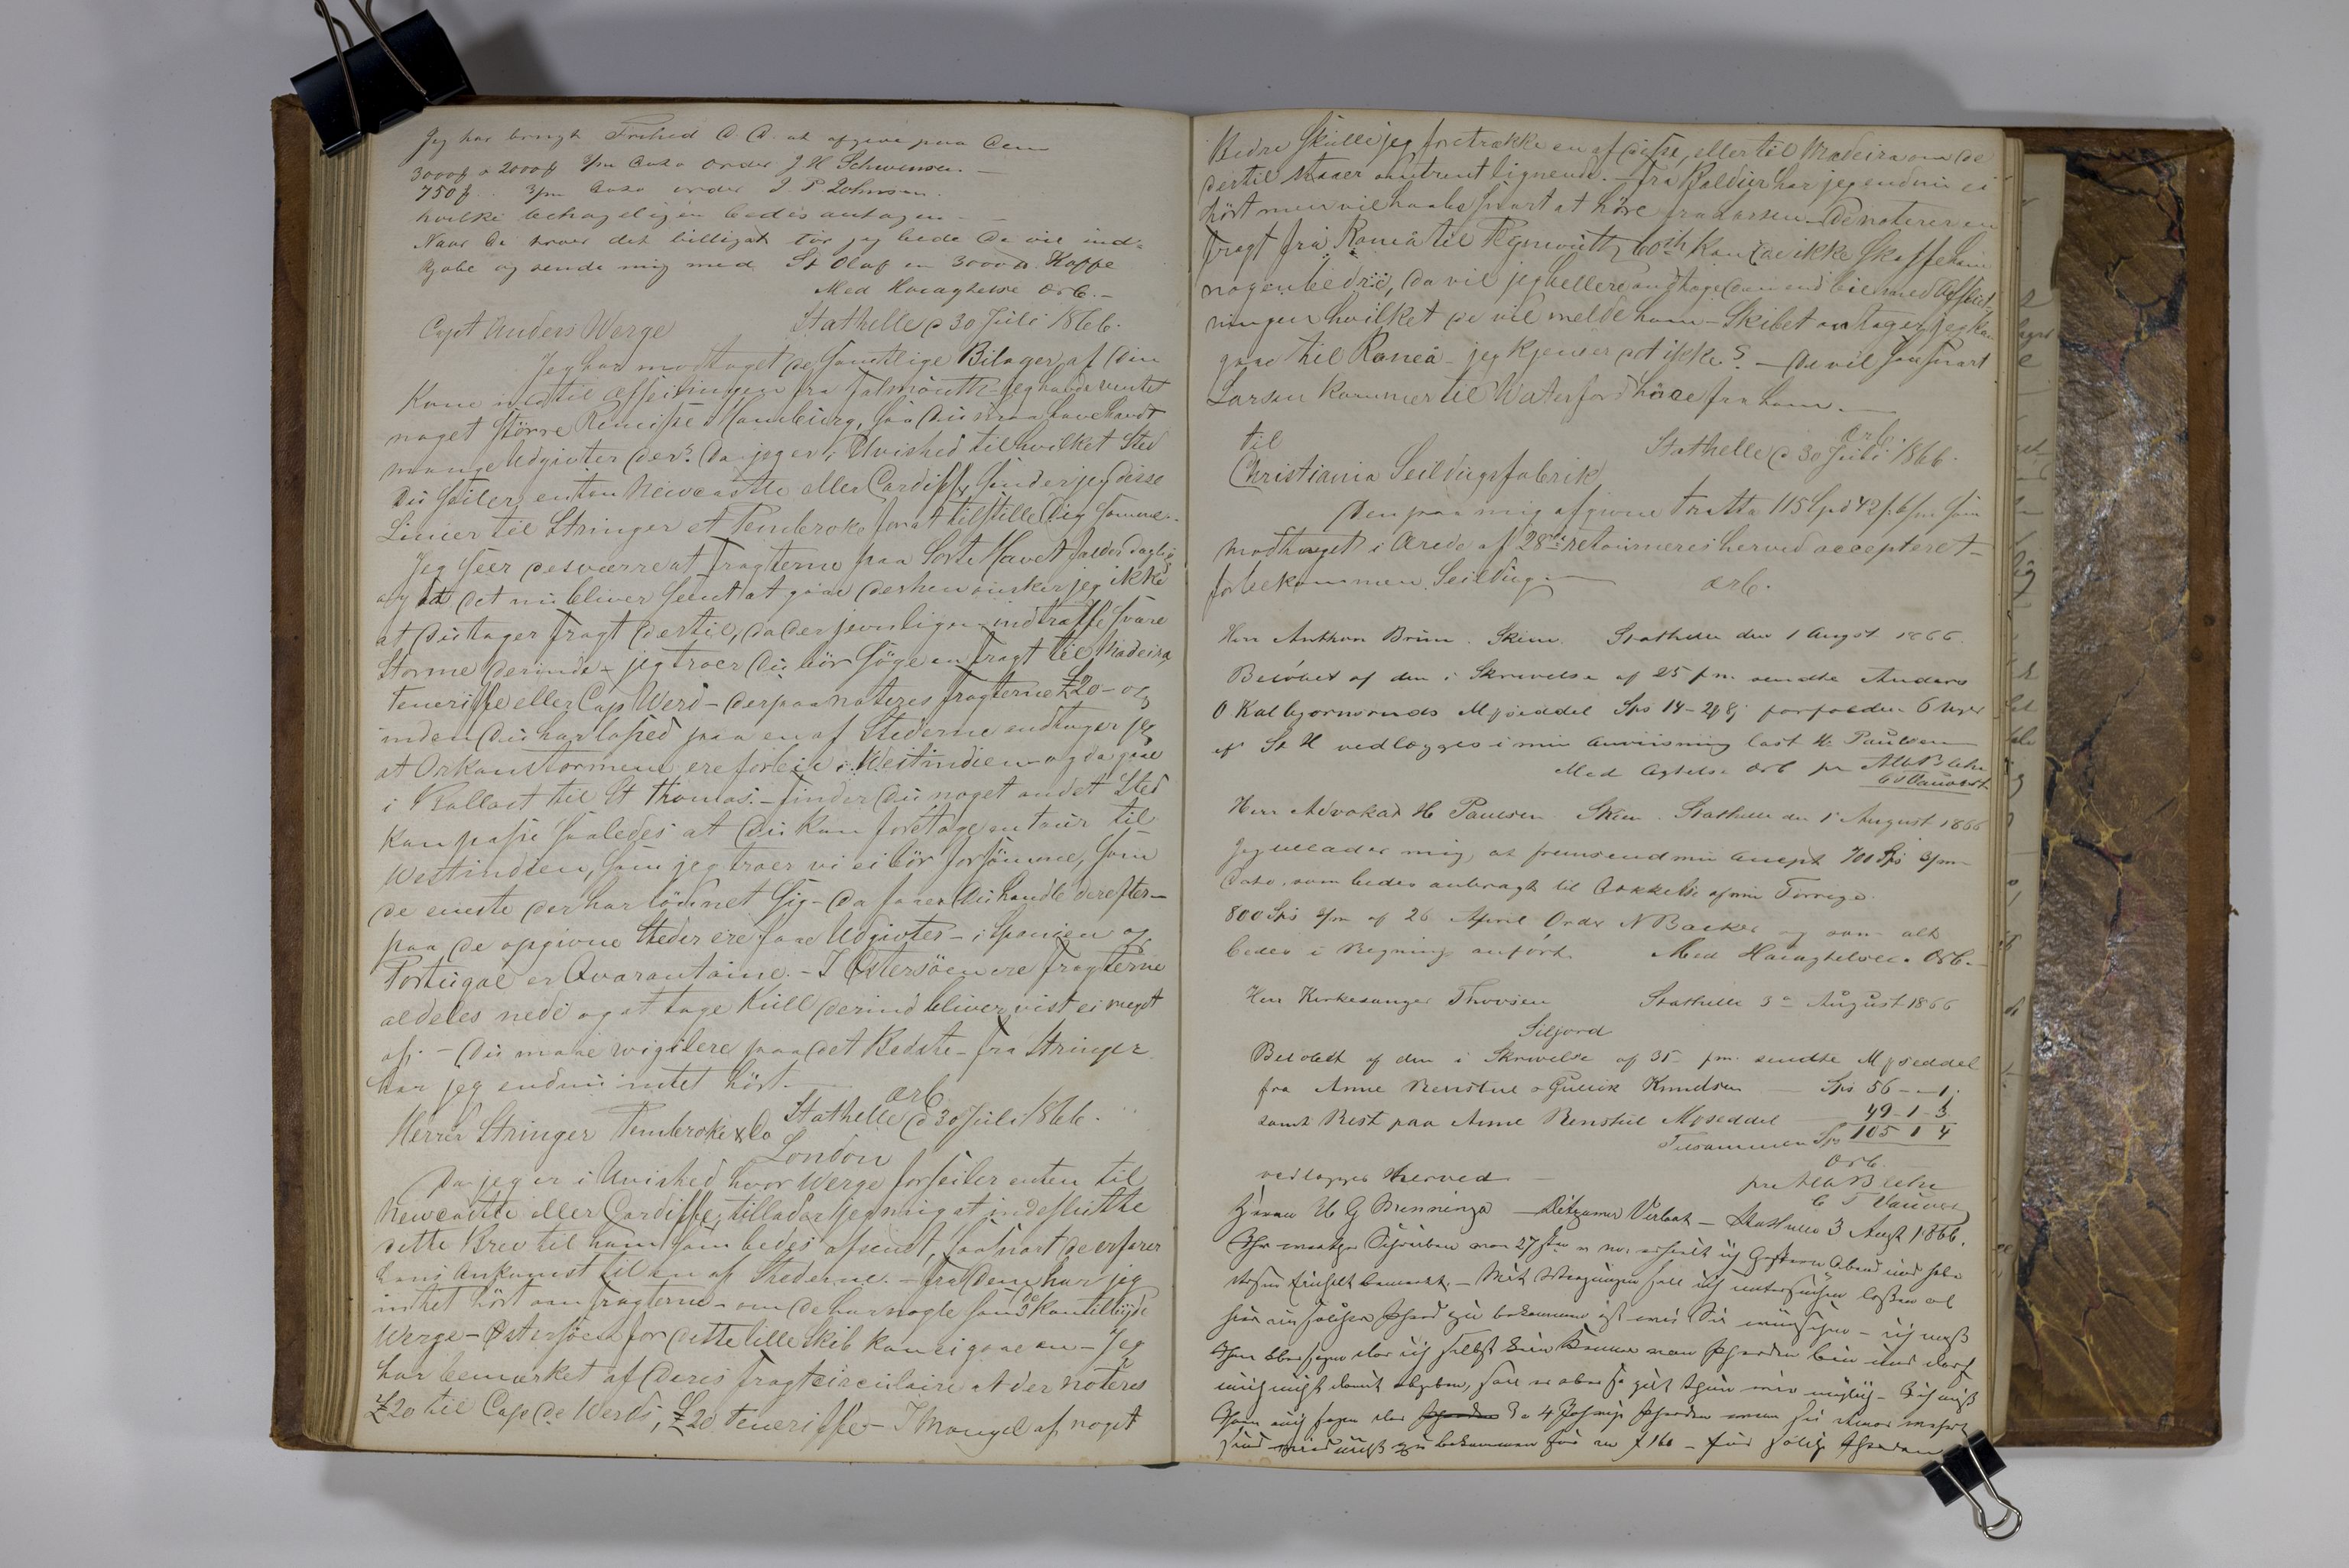 Jeg har brugt Frihed D. D. at afgive paa Dem
3000 f a 2000 f 3/m dato Order J H Schwensen. —
750 f. 3/m dato order J P Johnsen.
hvilke behageligen bedes antagen —
Naar De troer det billigst tør jeg bede De vil ind-
kjøbe og sende mig med St Olaf en 3000 ℔ Kaffe
Med Høiagtelse ærb. —
Capt Anders Werge Stathelle d 30 Juli 1866.
Jeg har modtaget de samtlige Bilager af Din
Kone ind til afseilingen fra Falmouth – jeg havde ventet
noget større Remisse Hamburg, saa Du maa have havdt
mange Udgivter der? Da jeg er i Uvished til hvilket Sted
Du seiler, enten Newcastle eller Cardiff, sender jeg disse
Linier til Stringer et Pembroke for at tilstille Dig samme. –
Jeg seer desværre at Fragterne paa Sorte Havet falder daglig
og da det nu bliver seent at gaae derhen ønsker jeg ikke
at Du tager Fragt dertil, da der jevnligen indtræffe svære
Storme derinde – jeg troer Du bør søge en Fragt til Madeira,
Teneriffe eller Cap Werd – derpaa noteres Fragterne £20 – og
inden Du har losset paa en af Stederne endtager jeg
at Orkanstormene ere forbie i Westindien og da gaae
i Ballast til St Thomas. – finder Du noget andet Sted
kan passe saaledes at Du kan foretage en tour til
Westindien, som jeg troer vi ei bør forsømme, som
de eneste der har lønnet sig – da faaer Du handle derefter –
paa de opgivne Steder ere faae Udgivter – i Spanien og
Portugal er Qvarantaine. – I Østersøen ere Fragterne
aldeles nede og at tage Kull derind bliver vist ei meget
af. – Du maae wigilere paa det Bedste – fra Stringer
har jeg endnu intet hørt. —
ærb
Herrer Stringer Pembroke & Co Stathelle d 30 Juli 1866.
London
Da jeg er i Uvished hvor Werge forseiler enten til
Newcastle eller Cardiffe, tillader jeg mig at indeslutte
dette Brev til ham som bedes afsendt, saasnart De erfarer
hans Ankomst til en af Stederne. – fra Dem har jeg
intet hørt om Fragterne – om De har nogle som De kan tilbyde
Werge – Østersøen for dette lille Skib kan ei gaae an – Jeg
har bemærket af Deres Fragtcirculaire at der noteres
£20 til Cap de Werds, £20 Teneriffe – I Mangel af noget
Bedre skulle jeg foretrække en af disse, eller til Madeira om de
dertil staaer omtrent lignende. – fra Baldur har jeg endnu ei
hørt men vil haabe snart at høre fra Larsen – De noterer en
fragt fra Raneå til Tegnmouth 60 sh Kan De ikke skaffe ham
nogen bedre, da vil jeg hellere
ningen hvilket De vil melde ham – Skibet antager jeg kan
gaae til Raneå – jeg kjender det ikke? – De vil saasnart
Larsen kommer til Waterford høre fra ham. —
ærb.
til Stathelle d 30 Juli 1866.
Christiania Seildugsfabrik
Den paa mig afgivne Tratta 115 Spd 42 f. 6/m som
modtaget i Ærede af 28de retourneres herved accepteret –
for bekommen Seildug. — ærb.
Herr Anthon Bruun. Skien. Stathelle den 1 Augst 1866.
Beløbet af den i Skrivelse af 25 f. m. sendte Anders
O Kalbjørnsrunds Mpseddel Sps 14 – 2 forfalden 6 Uger
af St H vedlægges i min anviisning last H. Paulsen
Med Agtelse ærb pr Alb Blehr
C T Vauvert
Herr Advokat H Paulsen Skien. Stathelle den 1 August 1866
Jeg tillader mig, at fremsende min Accept 700 Sps 3/m
Dato, som bedes anbragt til Dækkelse af min Forrige
800 Sps 3/m af 26 April Order N Backer og som alt
bedes i Regning anført. Med Høiagtelse. Ærb. —
Herr Kirkesanger Thorsen Stathelle 3 August 1866
Seljord
Beløbet af den i Skrivelse af 35 pm. sendte Mpseddel
fra Anne Renstul & Gullik Knudsen — Sps 56 – – 1.
samt Rest paa Anne Renstul Mpseddel 49 – 1 – 3
Tilsammen Sps 105 1 4
Ærb.
vedlægges herved — pr Alb Blehr
C T Vauvert
Herrn U G Menninga — Ditzumer Verlaat — Stathelle 3 Augst 1866.
Ihr werthes Schreiben von 27sten erhielt ich Gestern Abend und habe
bekommen ist wie Sie wünschen – ich muß
Ihnen sagen das ich selbst kein Kenner von Pferden bin und darf
3 a 4 Jahrige Pferden
zu bekommen für £ 160 – für solche Pferden